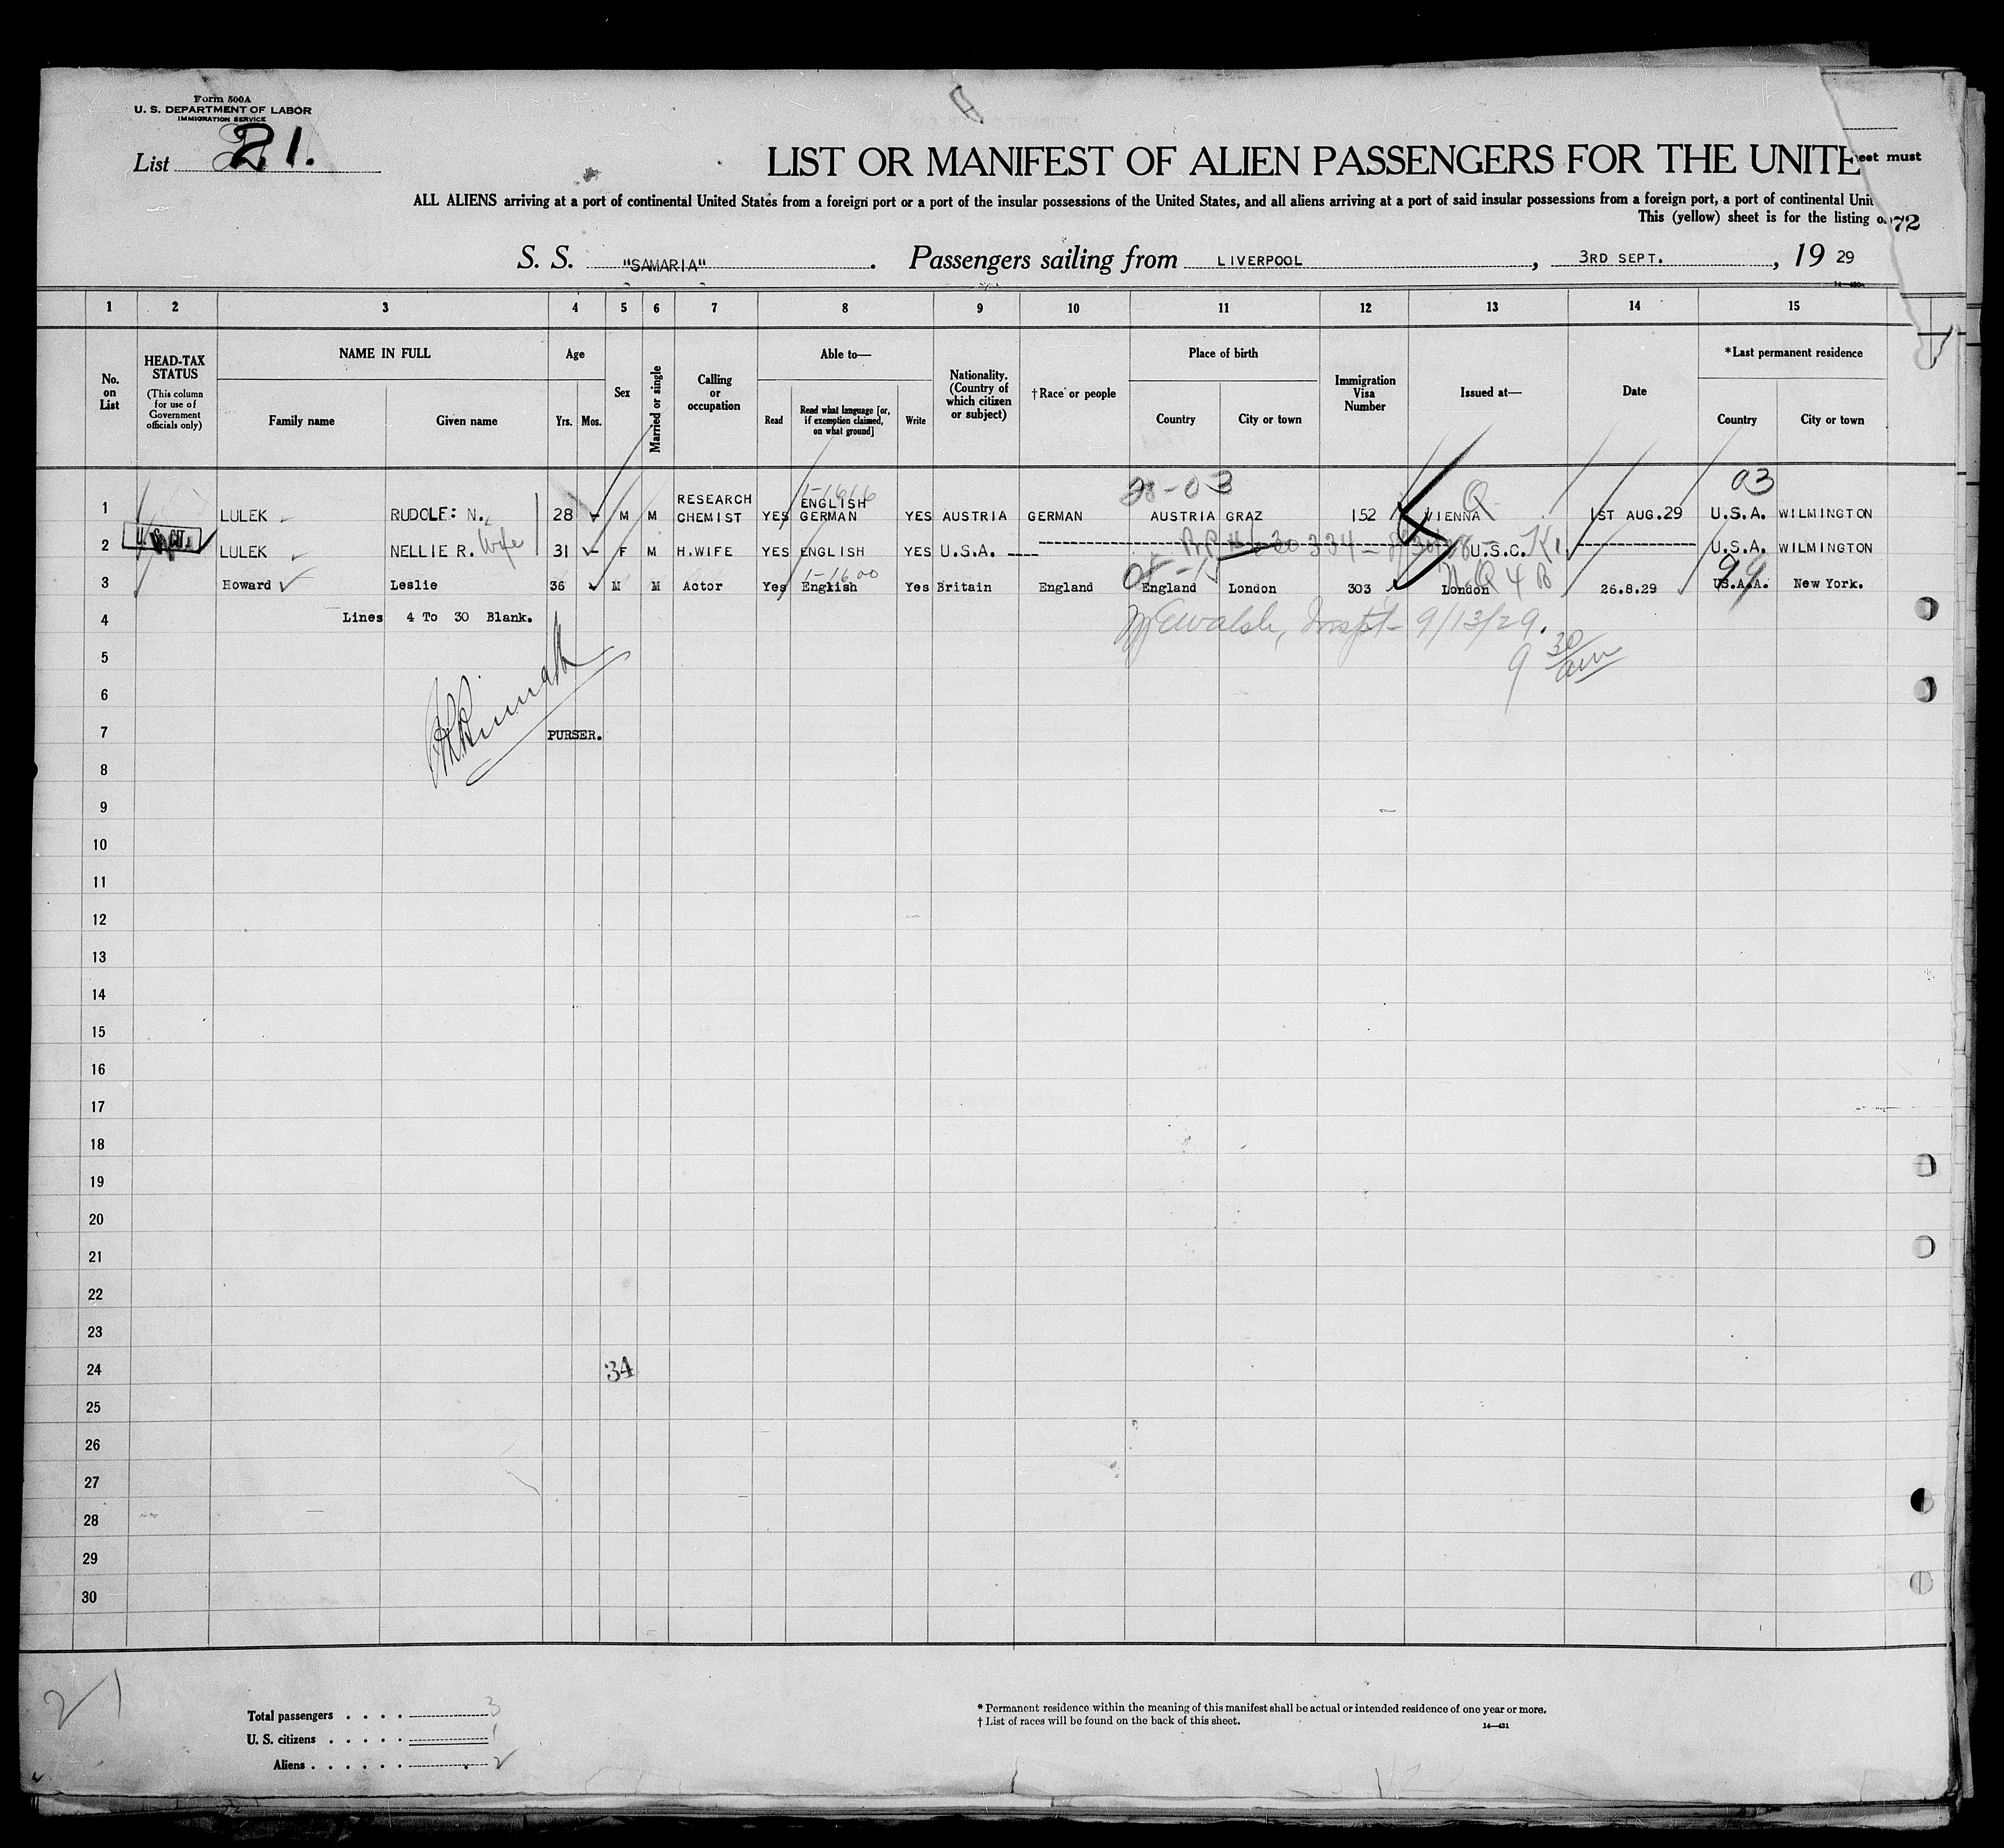 Form 500A
U. S. DEPARTMENT OF LABOR
IMMIGRATION SERVICE
List 21.
LIST OR MANIFEST OF ALIEN PASSENGERS FOR THE UNITE
eet must
ALL ALIENS arriving at a port of continental United States from a foreign port or a port of the insular possessions of the United States, and all aliens arriving at a port of said insular possessions from a foreign port, a port of continental Unit
This (yellow) sheet is for the listing o
72
S. S. "SAMARIA". Passengers sailing from LIVERPOOL, 3RD SEPT., 19 29
1 2 3 4 5 6 7 8 9 10 11 12 13 14 15
No. on List
HEAD-TAX STATUS
(This column for use of Government officials only)
NAME IN FULL
Family name Given name
Age
Yrs. Mos.
Sex
Married or single
Calling or occupation
Able to—
Read
Read what language [or, if exemption claimed, on what ground]
Write
Nationality. (Country of which citizen or subject)
†Race or people
Place of birth
Country City or town
Immigration Visa Number
Issued at—
Date
*Last permanent residence
Country City or town
03
1 LULEK RUDOLF: N. 28 - M M RESEARCH CHEMIST YES ENGLISH GERMAN YES AUSTRIA GERMAN AUSTRIA GRAZ 152 VIENNA Q 1ST AUG.29 U.S.A. WILMINGTON
2 U.S. CIT. LULEK NELLIE R. Wife 31 - F M H.WIFE YES ENGLISH YES U.S.A. U.S.C. U.S.A. WILMINGTON
3 Howard Leslie 36 M M Actor Yes English Yes Britain England England London 303 London 26.8.29 New York.
4 Lines 4 To 30 Blank.
9/13/29.
9 30 am
5
6
7 PURSER.
8
9
10
11
12
13
14
15
16
17
18
19
20
21
22
23
24 34
25
26
27
28
29
30
21
Total passengers . . . . 3
U. S. citizens . . . . . 1
Aliens . . . . . . . 2
* Permanent residence within the meaning of this manifest shall be actual or intended residence of one year or more.
† List of races will be found on the back of this sheet.
14—431